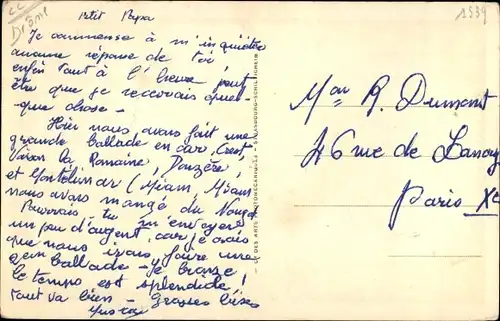 Drôme
1339
petit Papa
Je commence à m'inquiéter
aucune réponse de toi
enfin tout à l'heure peut
être que je recevrais quel-
-que chose -
Hier nous avons fait une
grande ballade en car, Crest,
Vaison la Romaine, Donzère,
et Montélimar (Miam, Miam
nous avons mangé du Nougat
Pourrais tu m'envoyer
un peu d'argent, car je crois
que nous irons faire une
ballade - Je bronze
le temps est splendide!
tout va bien - Grosses bises
Mon R. Dumont
46 rue de Lancry
Paris Xe